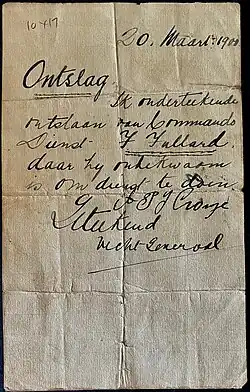 10 x 17
20. Maart 1900
Ontslag.
Ik onderteekende
ontslaan van Commando
Dienst F Fullard.
daar hy onbekwaam
is om dienst te doen
A P J Cronje
Geteekend
Vecht Generaal